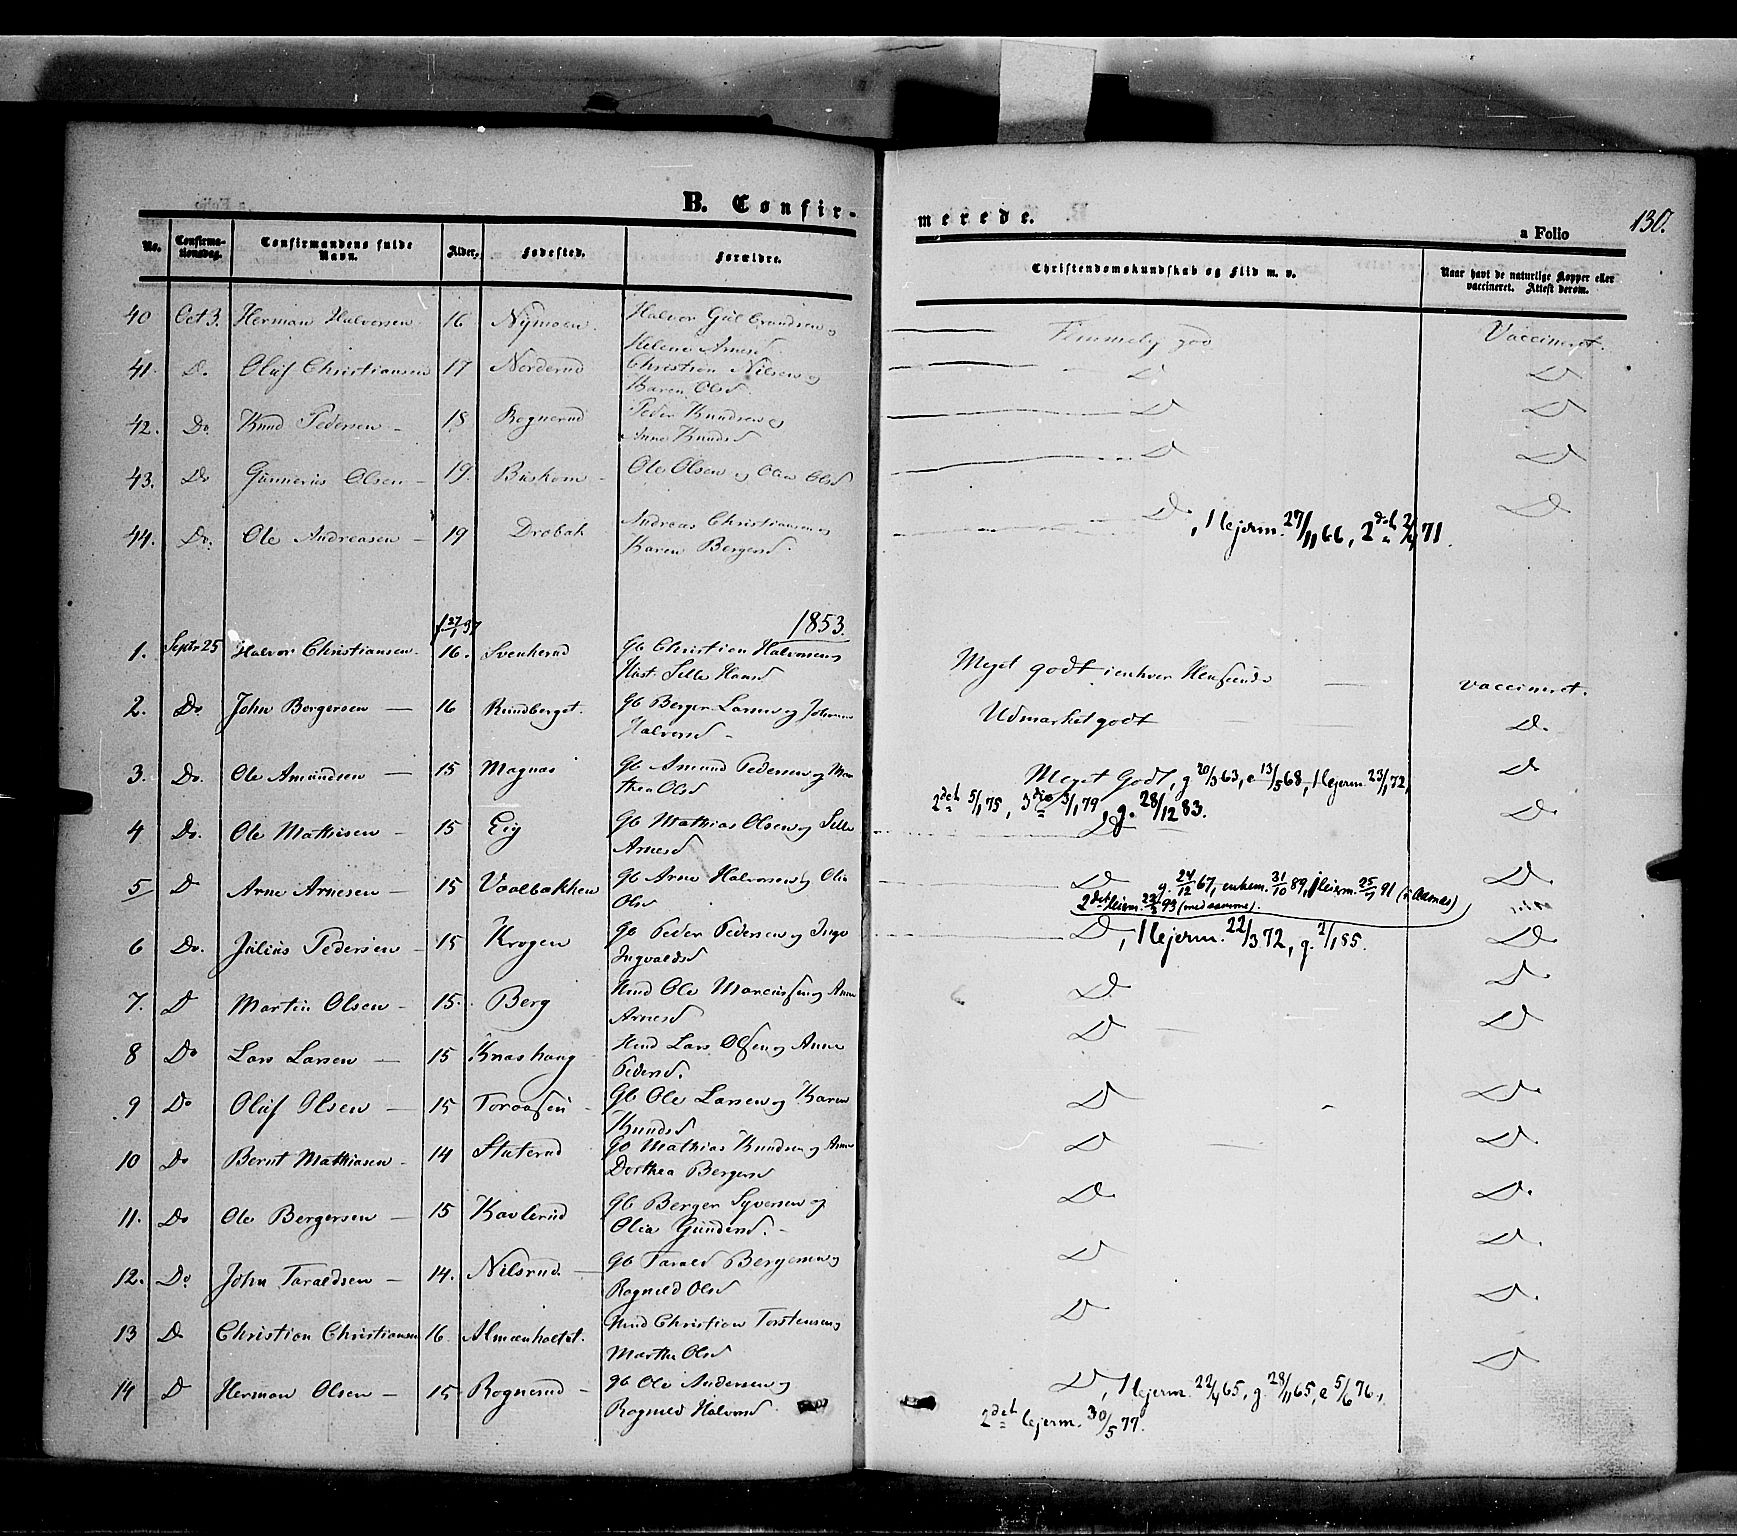 B. Confir-
merede.
a Folio
130.
No.
Confirma-
tionsdag.
Confirmandens fulde
Navn.
Alder.
Fødested.
Forældre.
Christendomskundskab og Flid m. v.
Naar havt de naturlige Kopper eller
vaccineret. Attest derom.
40 Oct 3. Herman Halvorsen 16 Nymoen. Halvor Gulbrandsen og
Helene Arnesd Temmelig god Vaccineret.
41. D. Oluf Christiansen 17 Norderud Christian Nilsen og
Karen Olsd. D D
42. Do Knud Pedersen - 18 Rognerud Peder Knudsen og
Anne Knudsd D D
43. Do Gunnerius Olsen - 19. Ole Olsen og Olea Olsd D D
44. Do. Ole Andreasen - 19 Drøbak Andreas Christiansen og
Karen Bergersd. D, 1 lejerm. 27/11 66, 2det 2/4 71. D
1853.
27/1 37
1. Septr 25 Halvor Christiansen. 16. Svenkerud Gb Christian Halvorsen og
Hust. Sille Hansd Meget godt i enhver Henseende vaccineret.
2. Do. John Bergersen - 16 Rundberget. Gb Berger Larsen og Johanne
Halvorsd - Udmærket godt D.
3. Do. Ole Amundsen - 15 Magnas Gb Amund Pedersen og Mar
thea Olsd Meget Godt, g 20/3 63, e 13/5 68, 1 lejerm. 23/1 72, D
2det 5/1 75, 3die 3/1 79, g. 28/12 83.
4 Do. Ole Mathisen - 15 Eig Gb Mathias Olsen og Sille
Arnesd D D
5 D Arne Arnesen - 15 Vaalbakken Gb Arne Halvorsen og Olia
Olsd D g. 24/12 67, enkem. 31/10 89, 1 leierm. 25/1 91 (i Aasnes) D
2det leierm. 22/3 93 (med samme).
6 Do. Julius Pedersen - 15 Krogen Gb Peder Pedersen og Inge
Ingvaldsd D, 1 lejerm. 22/3 72, g. 2/1 55. D
7. D Martin Olsen - 15. Berg Hmd Ole Marcussen og Anne
Arnesd D. D
8 Do Lars Larsen - 15 Knashaug Hmd Lars Olsen og Anne
Pedersd. D D
9 Do Oluf Olsen - 15 Toraasen Gb Ole Larsen og Karen
Knudsd D D
10 Do Bernt Mathiasen - 14 Staterud Gb Mathias Knudsen og Anne
Dorthea Bergersd D D.
11. Do Ole Bergersen - 15 Kavlerud Gb Berger Syversen og
Olia Gundersd. - D D.
12. Do John Taraldsen - 14. Nilsrud. - Gb Tarald Bergersen og
Rognild Olsd D D.
13 Do Christian Christiansen 16. Almenholtet. Hmd Christian Torstensen og
Marthe Olsd D D.
14 D Herman Olsen - 15 Rognerud - Gb Ole Andersen og
Rognild Halvorsd. D, 1 lejerm. 22/4 65, g. 28/11 65, e 5/6 76, D
2det lejerm. 30/5 77.